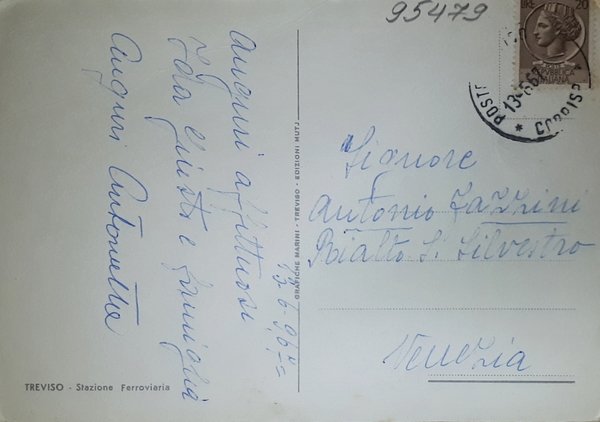 95479
LIRE 20
POSTE REPUBBLICA ITALIANA
13-6-6
Auguri affettuosi
Ida Giusti e famiglia
Auguri Antonetta
13.6.96
GRAFICHE MARINI - TREVISO - EDIZIONI
Signore
Antonio Zazzini
Rialto S. Silvestro
Venezia
TREVISO - Stazione Ferroviaria